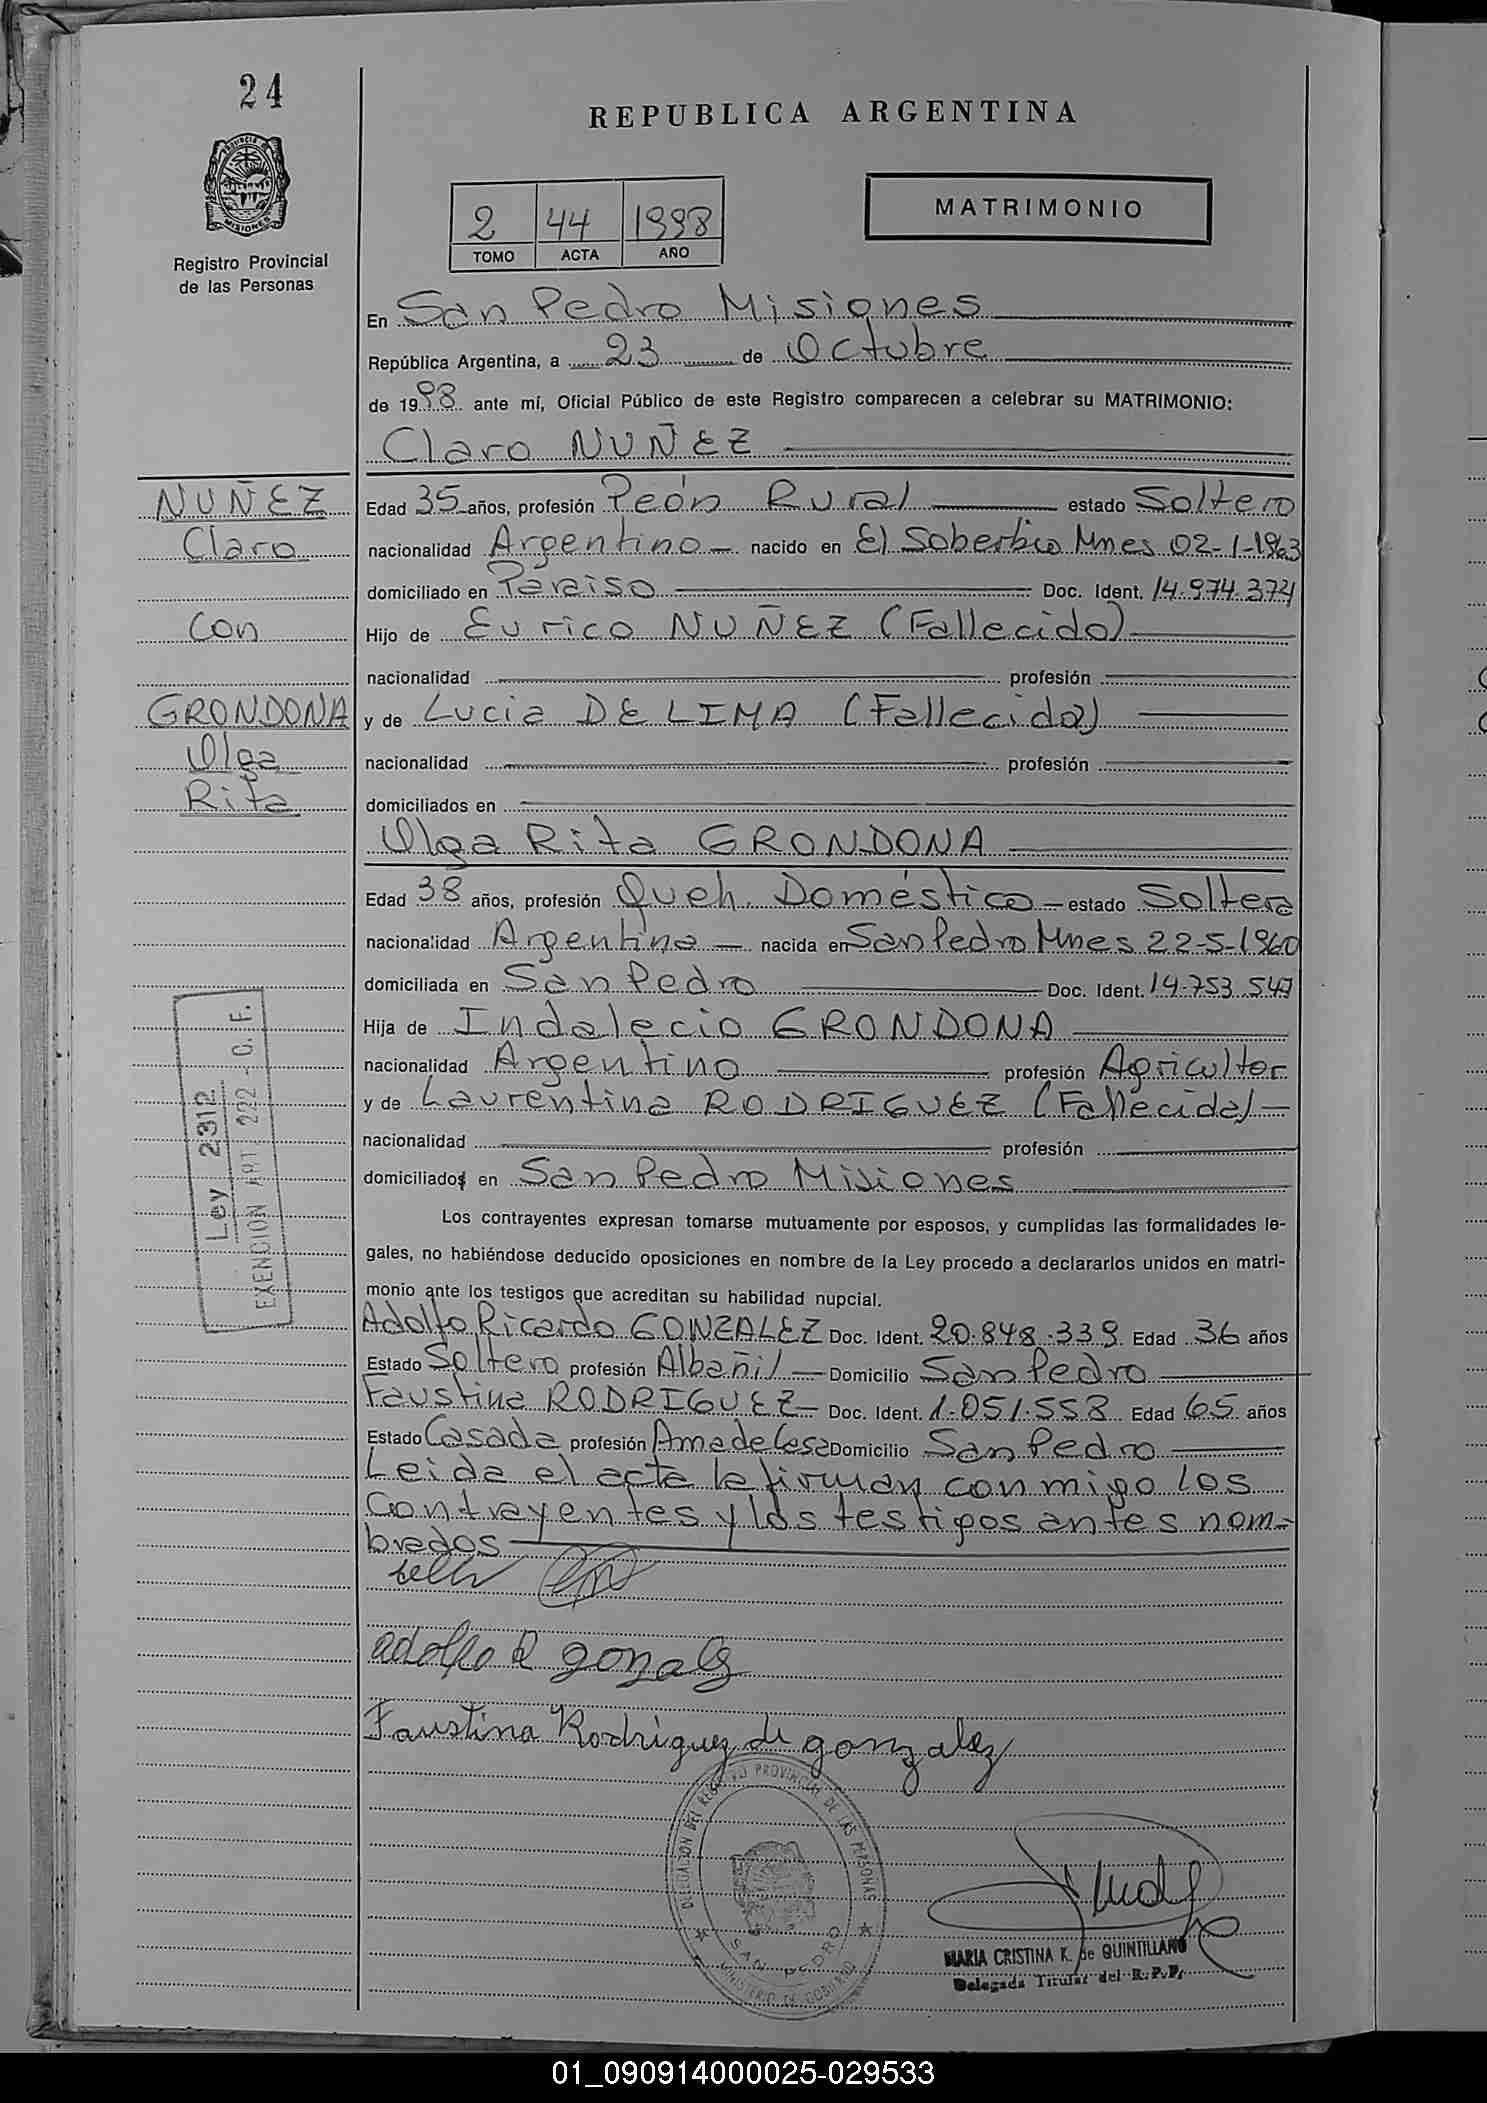 24
REPUBLICA ARGENTINA
PROVINCIA DE MISIONES
Registro Provincial
de las Personas
2 44 1998
TOMO ACTA AÑO
MATRIMONIO
En San Pedro Misiones
República Argentina, a 23 de Octubre
de 1998 ante mí, Oficial Público de este Registro comparecen a celebrar su MATRIMONIO:
Claro NUÑEZ
NUÑEZ
Claro
con
GRONDONA
Olga
Rita
Edad 35 años, profesión Peón Rural estado Soltero
nacionalidad Argentino nacido en El Soberbio Mnes 02-1-1963
domiciliado en Paraiso Doc. Ident. 14.974.374
Hijo de Eurico NUÑEZ (Fallecido)
nacionalidad profesión
y de Lucia DE LIMA (Fallecida)
nacionalidad profesión
domiciliados en
Olga Rita GRONDONA
Edad 38 años, profesión Queh. Doméstico estado Soltera
nacionalidad Argentina nacida en San Pedro Mnes 22-5-1960
domiciliada en San Pedro Doc. Ident. 14.753.547
Hija de Indalecio GRONDONA
nacionalidad Argentino profesión Agricultor
y de Laurentina RODRIGUEZ (Fallecida)
nacionalidad profesión
domiciliados en San Pedro Misiones
Ley 2312
EXENCION ART. 222 - C. F.
Los contrayentes expresan tomarse mutuamente por esposos, y cumplidas las formalidades le-
gales, no habiéndose deducido oposiciones en nombre de la Ley procedo a declararlos unidos en matri-
monio ante los testigos que acreditan su habilidad nupcial.
Adolfo Ricardo GONZALEZ Doc. Ident. 20.848.339 Edad 36 años
Estado Soltero profesión Albañil Domicilio San Pedro
Faustina RODRIGUEZ Doc. Ident. 1.051.558 Edad 65 años
Estado Casada profesión Ama de Casa Domicilio San Pedro
Leida el acta la firman conmigo los
contrayentes y los testigos antes nom-
brados
adolfo R gonzalez
Faustina Rodriguez de gonzalez
DELEGACION DEL REGISTRO PROVINCIAL DE LAS PERSONAS
SAN PEDRO
MINISTERIO DE GOBIERNO
MARIA CRISTINA K. de QUINTILLANO
Delegada Titular del R.P.P.
01_090914000025-029533